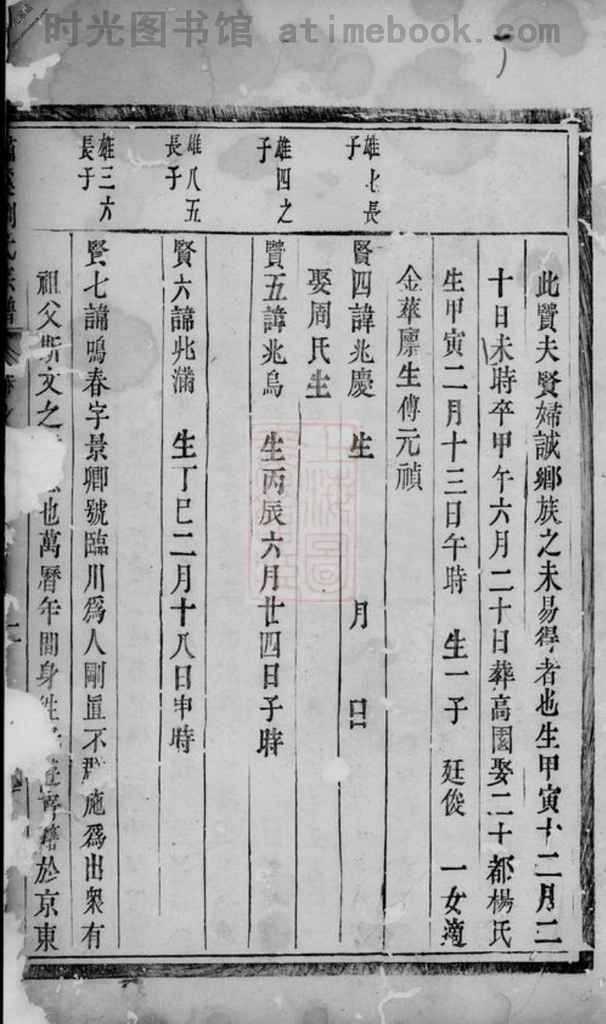 时光图书馆 atimebook.com
此賢夫賢婦誠鄉族之未易得者也生甲寅十二月二
十日未時卒甲午六月二十日葬高園娶二十都楊氏
生甲寅二月十三日午時 生一子 廷俊 一女適
金華廪生傅元禎
雄七長子
賢四諱兆慶 生 月 日
娶周氏生
雄四之子
賢五諱兆烏 生丙辰六月廿四日子時
雄八五長子
賢六諱兆滿 生丁巳二月十八日申時
雄三六長子
賢七諱鳴春字景卿號臨川爲人剛直不群施爲出衆有
祖父斯文之 也萬曆年間身 於京東